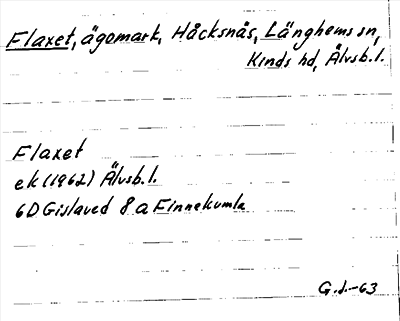 Flaxet, ägomark, Håcksnås, Länghems sn,
Kinds hd, Älvsb.l.
Flaxet
ek (1962) Älvsb.l.
6D Gislaved 8 a Finnekumla
G.J.-63